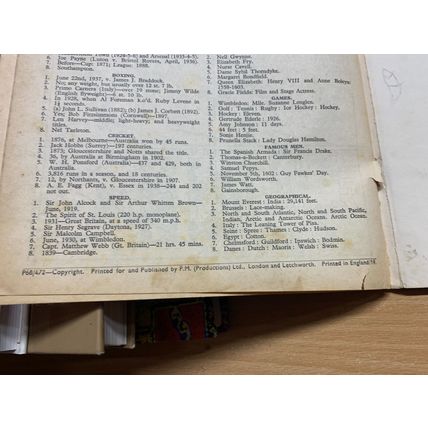 6. Joe Payne (Luton v. Bristol Rovers, April, 1936).
7. Before—Cup: 1871; League: 1888.
8. Southampton.
BOXING.
1. June 22nd, 1937, v. James J. Braddock.
2. No; any weight, but usually over 12 st. 7 lb.
3. Primo Carnera (Italy)—over 19 stone; Jimmy Wilde
(English flyweight)—6 st. 10 lb.
4. In 1928, when Al Foreman ko'd. Ruby Levene in
seconds.
5. (a) John L. Sullivan (1882); (b) James J. Corbett (1892).
6. Yes; Bob Fitzsimmons (Cornwall)—1897.
7. Len Harvey—middle; light-heavy; and heavyweight
titles.
8. Nel Tarleton.
CRICKET.
1. 1876, at Melbourne—Australia won by 45 runs.
2. Jack Hobbs (Surrey)—197 centuries.
3. 1873; Gloucestershire and Notts shared the title.
4. 36, by Australia at Birmingham in 1902.
5. W. H. Ponsford (Australia)—437 and 429, both in
Australia.
6. 3,816 runs in a season, and 18 centuries.
7. 12, by Northants, v. Gloucestershire in 1907.
8. A. E. Fagg (Kent), v. Essex in 1938—244 and 202
not out.
SPEED.
1. Sir John Alcock and Sir Arthur Whitten Brown—
June, 1919.
2. The Spirit of St. Louis (220 h.p. monoplane).
3. 1931—Great Britain, at a speed of 340 m.p.h.
4. Sir Henry Segrave (Daytona, 1927).
5. Sir Malcolm Campbell.
6. June, 1930, at Wimbledon.
7. Capt. Matthew Webb (Gt. Britain)—21 hrs. 45 mins.
8. 1839—Cambridge.
2. Nell Gwynne.
3. Elizabeth Fry.
4. Nurse Cavell.
5. Dame Sybil Thorndyke.
6. Margaret Bondfield.
7. Queen Elizabeth: Henry VIII and Anne Boleyn:
1558-1603.
8. Gracie Fields: Film and Stage Actress.
GAMES.
1. Wimbledon: Mlle. Suzanne Lenglen.
2. Golf: Tennis: Rugby: Ice Hockey: Hockey.
3. Hockey: Eleven.
4. Gertrude Ederle: 1926.
5. Amy Johnson: 11 days.
6. 44 feet: 5 feet.
7. Sonja Henje.
8. Prunella Stack: Lady Douglas Hamilton.
FAMOUS MEN.
1. The Spanish Armada: Sir Francis Drake.
2. Thomas-a-Beckett: Canterbury.
3. Winston Churchill.
4. Samuel Pepys.
5. November 5th, 1602: Guy Fawkes' Day.
6. William Wordsworth.
7. James Watt.
8. Gainsborough.
GEOGRAPHICAL.
1. Mount Everest: India: 29,141 feet.
2. Brussels: Lace-making.
3. North and South Atlantic, North and South Pacific,
Indian, Arctic and Antarctic Oceans. Arctic Ocean.
4. Italy: The Leaning Tower of Pisa.
5. Seine: Spree: Thames: Clyde: Hudson.
6. Egypt: Cotton.
7. Chelmsford: Guildford: Ipswich: Bodmin.
8. Danes: Dutch: Maoris: Welsh: Swiss.
P68/472—Copyright. Printed for and Published by P.M. (Productions) Ltd., London and Letchworth. Printed in England